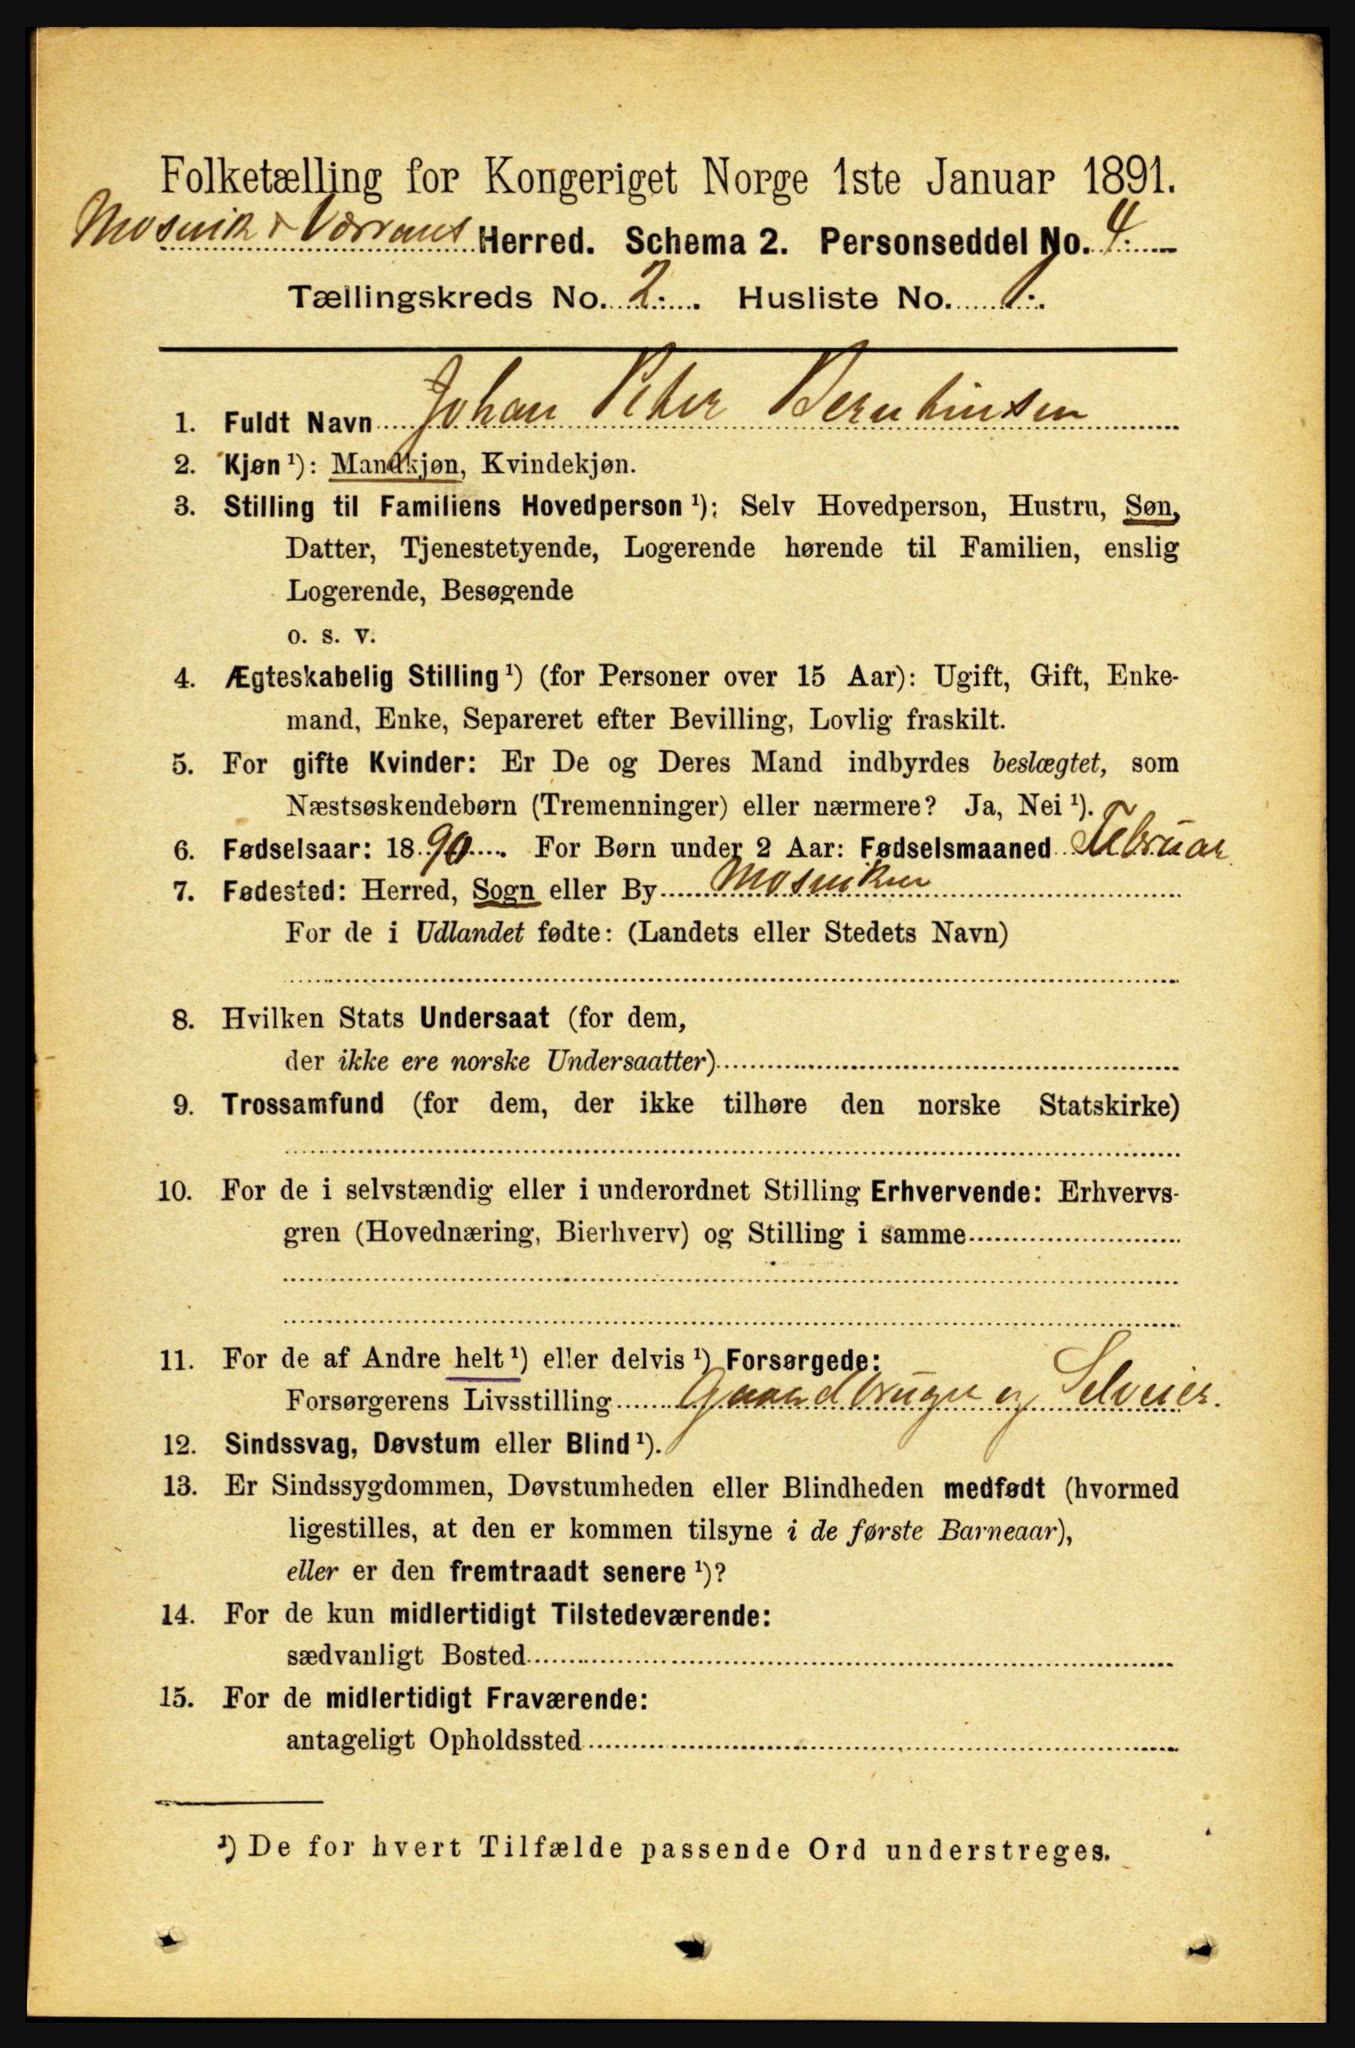 Folketælling for Kongeriget Norge 1ste Januar 1891.
Mosvik & Værrans Herred. Schema 2. Personseddel No. 4.
Tællingskreds No. 2. Husliste No. 1.
1. Fuldt Navn Johan Peter Berntinsen
2. Kjøn ¹): Mandkjøn, Kvindekjøn.
3. Stilling til Familiens Hovedperson ¹): Selv Hovedperson, Hustru, Søn,
Datter, Tjenestetyende, Logerende hørende til Familien, enslig
Logerende, Besøgende
o. s. v.
4. Ægteskabelig Stilling ¹) (for Personer over 15 Aar): Ugift, Gift, Enke-
mand, Enke, Separeret efter Bevilling, Lovlig fraskilt.
5. For gifte Kvinder: Er De og Deres Mand indbyrdes beslægtet, som
Næstsøskendebørn (Tremenninger) eller nærmere? Ja, Nei ¹).
6. Fødselsaar: 1890. For Børn under 2 Aar: Fødselsmaaned Februar
7. Fødested: Herred, Sogn eller By Mosviken
For de i Udlandet fødte: (Landets eller Stedets Navn)
8. Hvilken Stats Undersaat (for dem,
der ikke ere norske Undersaatter)
9. Trossamfund (for dem, der ikke tilhøre den norske Statskirke)
10. For de i selvstændig eller i underordnet Stilling Erhvervende: Erhvervs-
gren (Hovednæring, Bierhverv) og Stilling i samme
11. For de af Andre helt ¹) eller delvis ¹) Forsørgede:
Forsørgerens Livsstilling Gaardbruger og Selveier.
12. Sindssvag, Døvstum eller Blind ¹).
13. Er Sindssygdommen, Døvstumheden eller Blindheden medfødt (hvormed
ligestilles, at den er kommen tilsyne i de første Barneaar),
eller er den fremtraadt senere ¹)?
14. For de kun midlertidigt Tilstedeværende:
sædvanligt Bosted
15. For de midlertidigt Fraværende:
antageligt Opholdssted
¹) De for hvert Tilfælde passende Ord understreges.